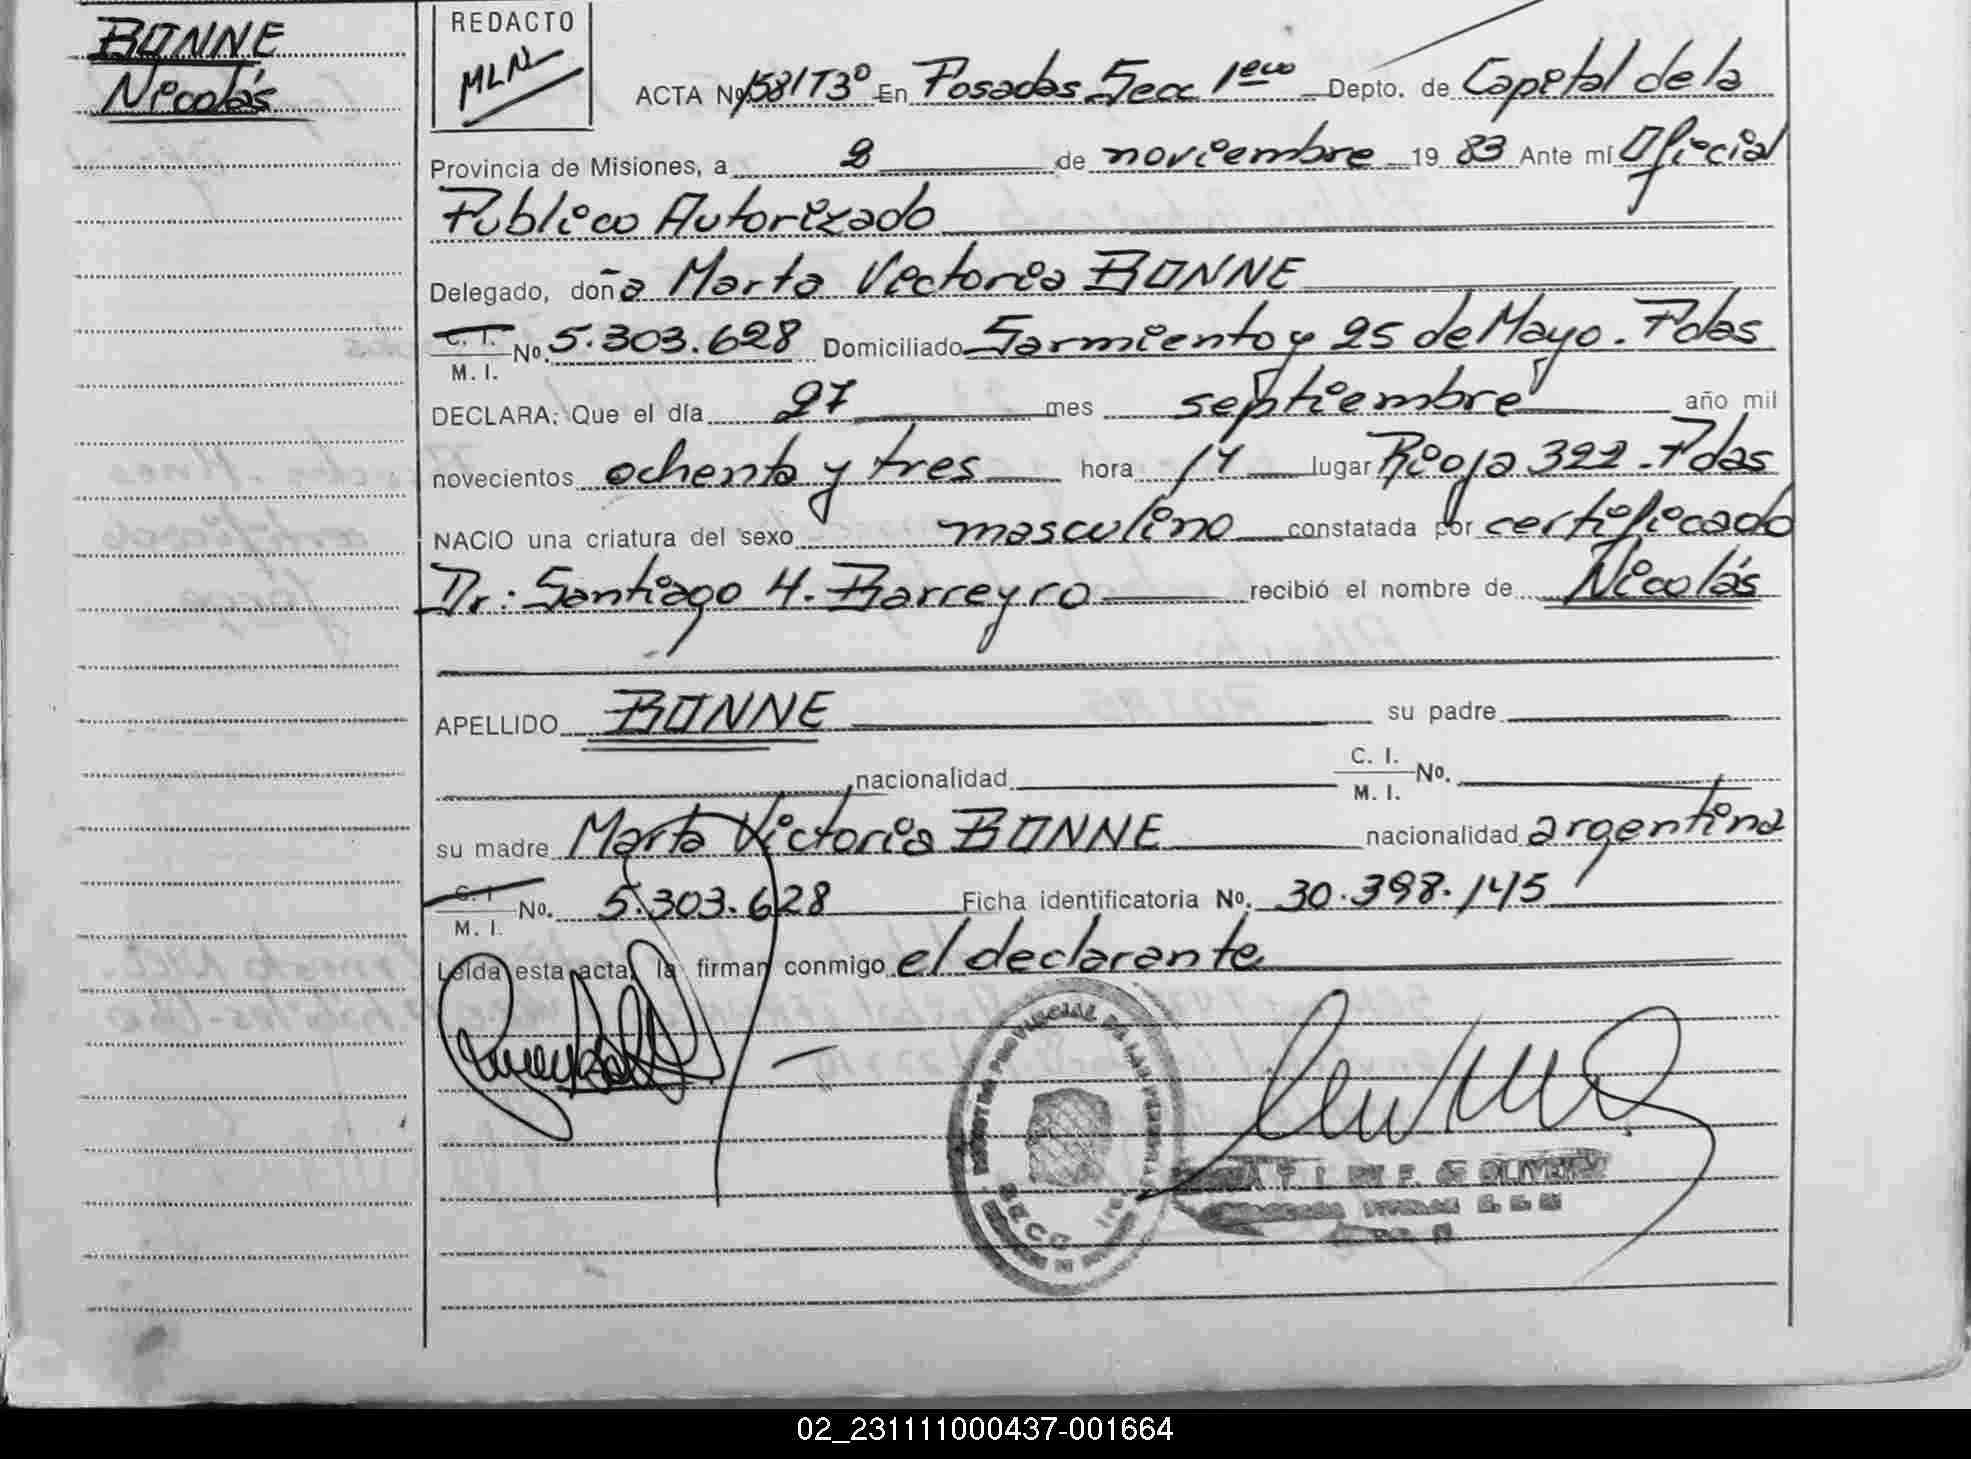 BONNE
Nicolás
REDACTO
MLN
ACTA Nº 158/T3º En Posadas Secc 1era Depto. de Capital de la
Provincia de Misiones, a 2 de noviembre 19 83 Ante mí Oficial
Publico Autorizado
Delegado, doña Marta Victoria BONNE
C. I.
M. I. No. 5.303.628 Domiciliado Sarmiento y 25 de Mayo. Pdas
DECLARA: Que el día 27 mes septiembre año mil
novecientos ochenta y tres hora 14 lugar Rioja 322. Pdas
NACIO una criatura del sexo masculino constatada por certificado
Dr: Santiago H. Barreyro recibió el nombre de Nicolás
APELLIDO BONNE su padre
nacionalidad C. I. M. I. No.
su madre Marta Victoria BONNE nacionalidad argentina
C. I.
M. I. No. 5.303.628 Ficha identificatoria No. 30.398.145
Leída esta acta, la firman conmigo el declarante
REGISTRO PROVINCIAL DE LAS PERSONAS
SECC
DE OLIVEIRA
02_231111000437-001664